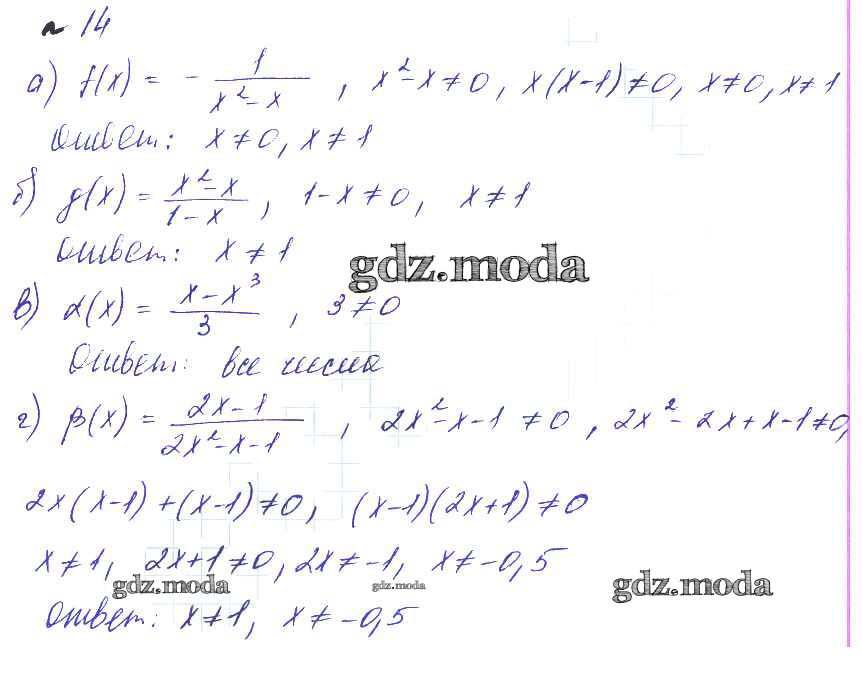 № 14
а) f(x) = - 1/(x² - x), x² - x ≠ 0, x(x-1) ≠ 0, x ≠ 0, x ≠ 1
Ответ: x ≠ 0, x ≠ 1
б) g(x) = (x² - x)/(1 - x), 1 - x ≠ 0, x ≠ 1
Ответ: x ≠ 1
gdz.moda
в) α(x) = (x - x³)/3, 3 ≠ 0
Ответ: все числа
г) β(x) = (2x - 1)/(2x² - x - 1), 2x² - x - 1 ≠ 0, 2x² - 2x + x - 1 ≠ 0,
2x(x-1) + (x-1) ≠ 0, (x-1)(2x+1) ≠ 0
x ≠ 1, 2x+1 ≠ 0, 2x ≠ -1, x ≠ -0,5
gdz.moda gdz.moda gdz.moda
Ответ: x ≠ 1, x ≠ -0,5